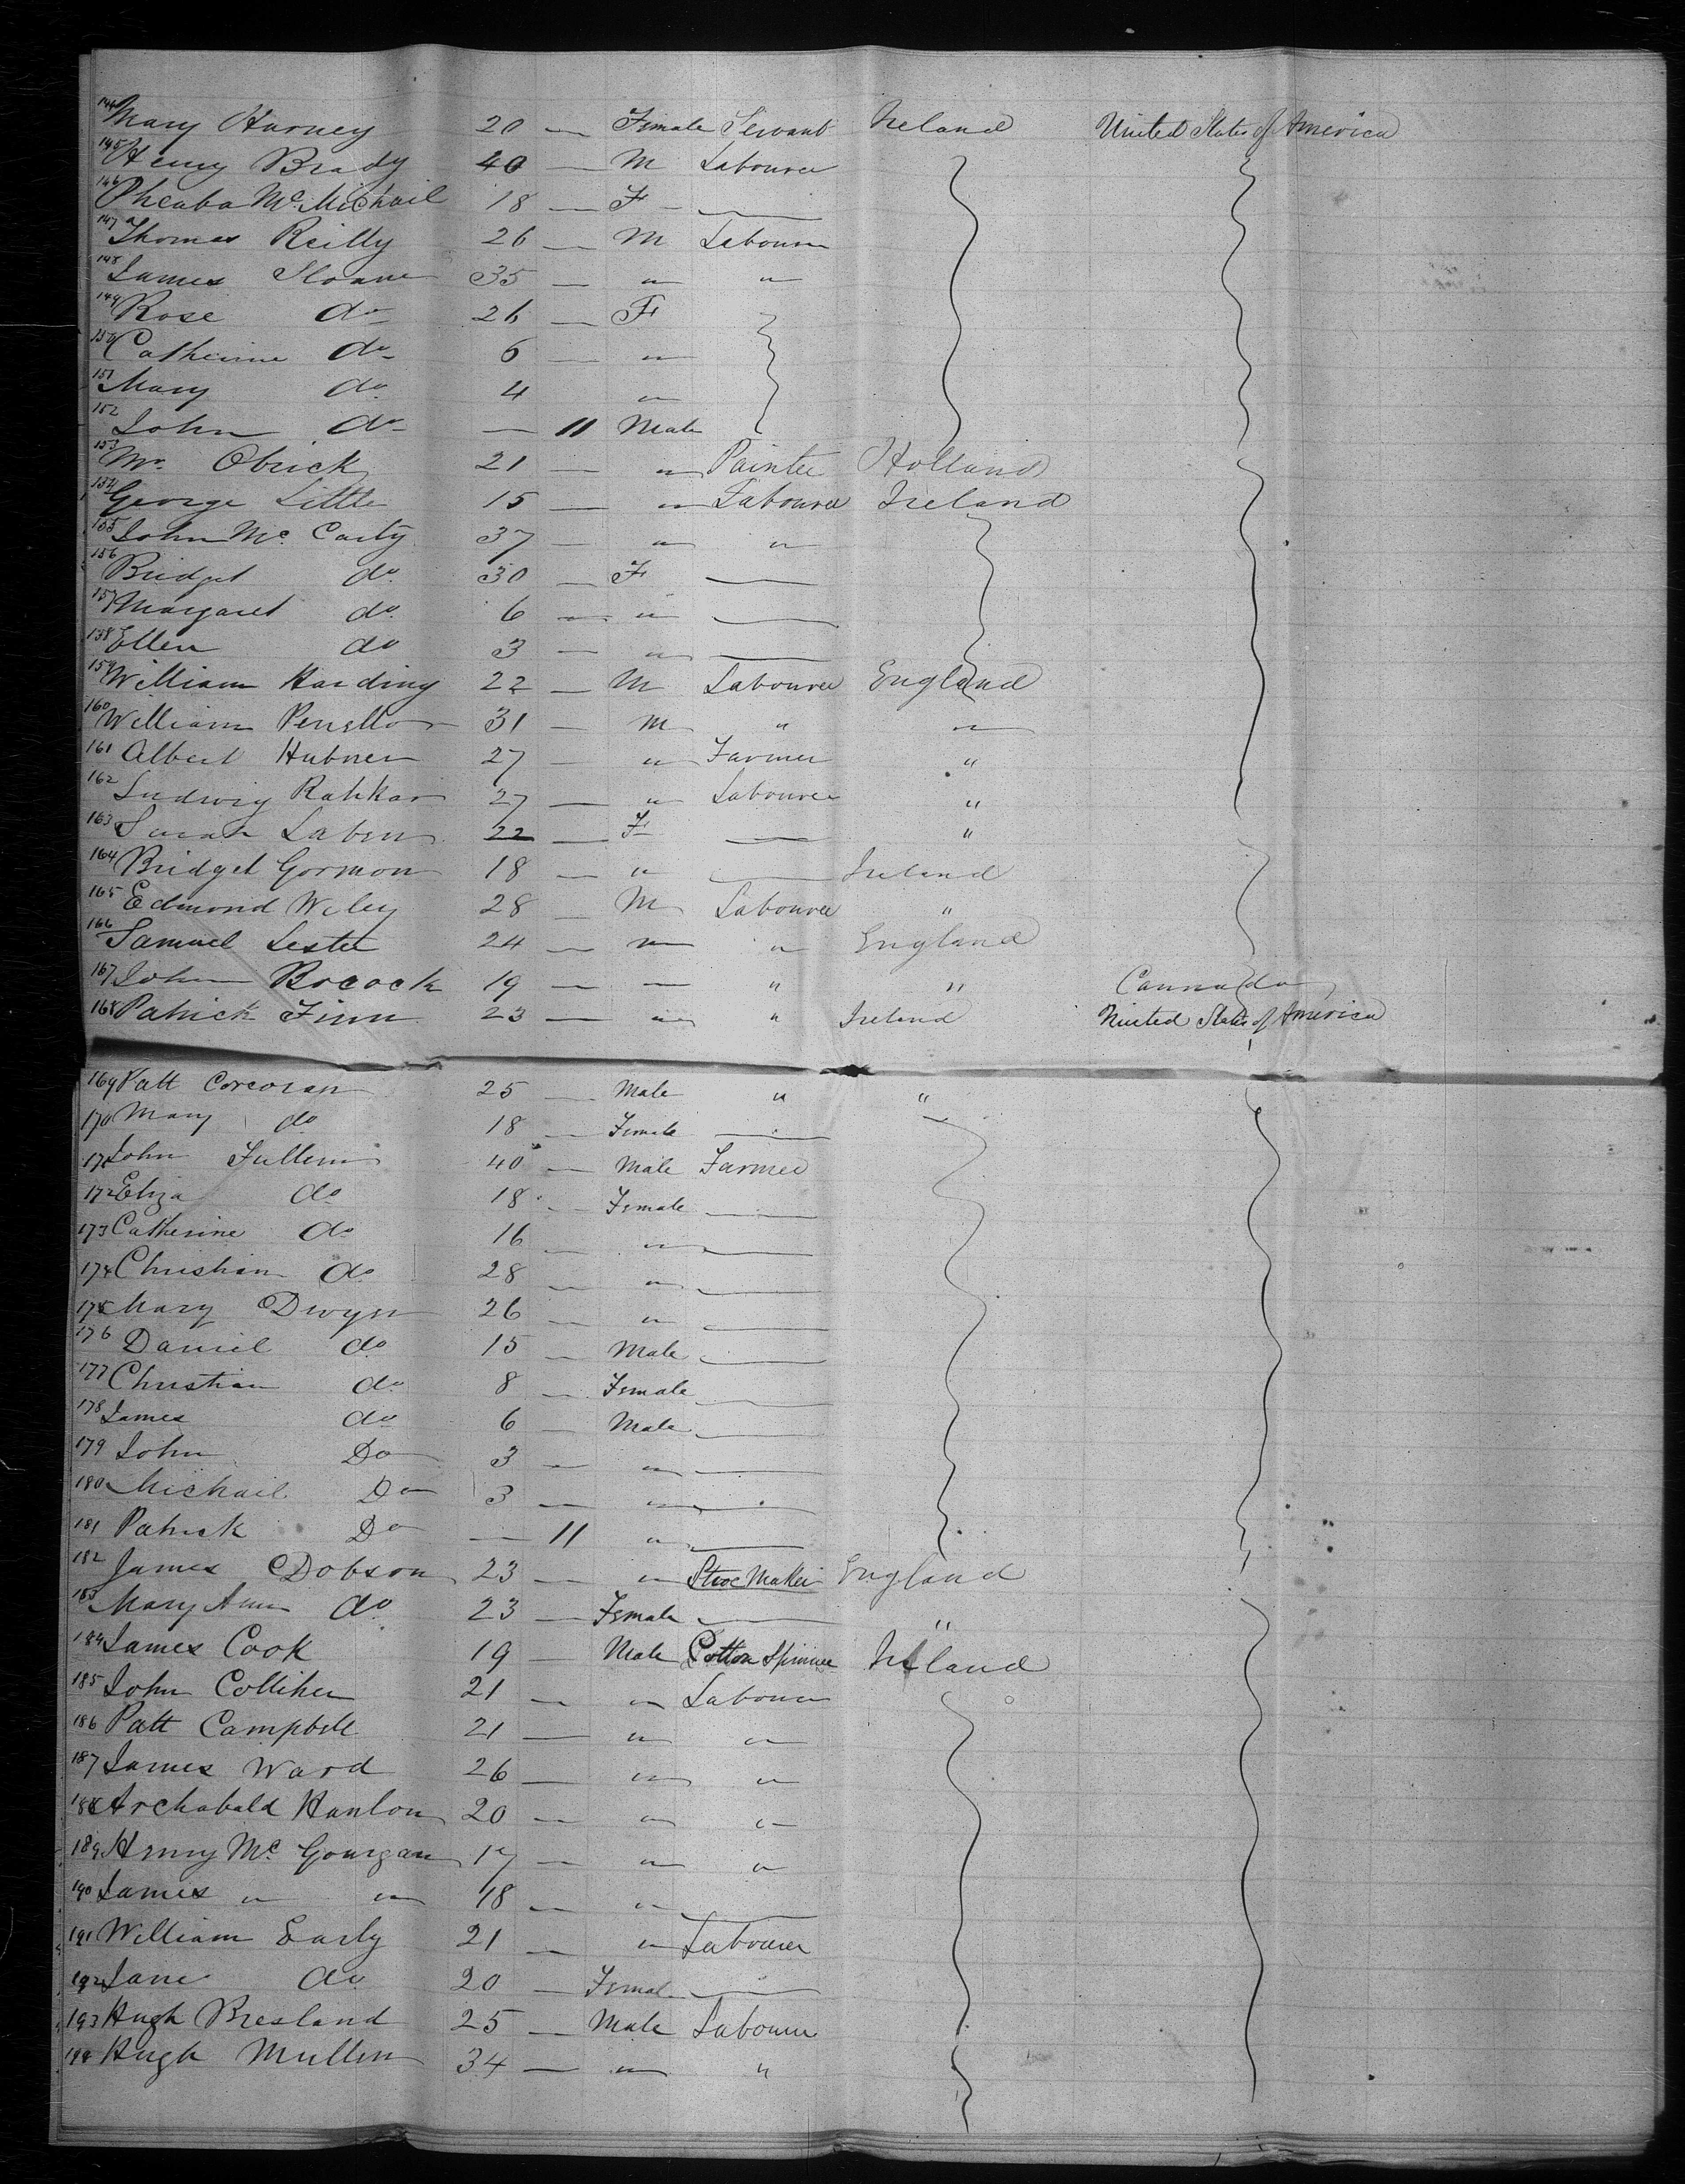 144 Mary Harney 20 — Female Servant Ireland United States of America
145 Henry Brady 40 — M Labourer
146 Pheaba Mc Michail 18 — F —
147 Thomas Reilly 26 — M Labourer
148 James Sloane 35 — " "
149 Rose do 26 — F
150 Catherine do 6 — "
151 Mary do 4 "
152 John do — 11 Male
153 Mr. Obrick 21 — " Painter Holland
154 George Little 15 — " Labourer Ireland
155 John Mc Carty 37 — " "
156 Bridget do 30 — F —
157 Margaret do 6 — " —
158 Ellen do 3 — " —
159 William Harding 22 — M Labourer England
160 William 31 — M " "
161 Albert Hubner 27 — " Farmer "
162 Ludwig 27 — " Labourer "
163 Sarah 22 — F — "
164 Bridget Gormon 18 — " — Ireland
165 Edmond Wiley 28 — M Labourer "
166 Samuel Lester 24 — " " England
167 John Bocock 19 — — " " Cannada
168 Patrick Finn 23 — " " Ireland United States of America
169 Patt Corcoran 25 — Male " "
170 Mary do 18 — Female —
171 John Fullem 40 — Male Farmer
172 Eliza do 18 — Female —
173 Catherine do 16 — " —
174 Christian do 28 — " —
175 Mary Dwyer 26 — " —
176 Daniel do 15 — Male —
177 Christian do 8 — Female —
178 James do 6 — Male —
179 John Do 3 — " —
180 Michail Do 3 — " —
181 Patrick Do — 11 " —
182 James Dobson 23 — " Shoe Maker England
183 Mary Ann do 23 — Female — "
184 James Cook 19 — Male Cotton Spinner Ireland
185 John Colliher 21 — " Labourer
186 Patt Campbell 21 — " "
187 James Ward 26 — " "
188 Archabald Hanlon 20 — " "
189 Henry Mc Gourgan 17 — " "
190 James " " 18 — " —
191 William Early 21 — " Labourer
192 Jane do 20 — Female —
193 Hugh Bresland 25 — Male Labourer
194 Hugh Mullen 34 — " "